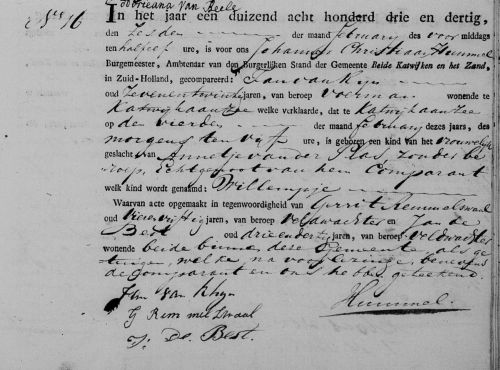 Adriana van Beele
N° 16
In het jaar een duizend acht honderd drie en dertig,
den Zesden der maand february des voor middags
ten half elf ure, is voor ons Johannes Christiaan Hummel
Burgemeester, Ambtenaar van den Burgerlijken Stand der Gemeente Beide Katwijken en het Zand,
in Zuid-Holland, gecompareerd: Jan van Rijn
oud Zevenentwintig jaren, van beroep Voerman wonende te
Katwijk aan Zee welke verklaarde, dat te Katwijk aan Zee
op de vierden der maand february dezes jaars, des
morgens ten vijf ure, is geboren een kind van het vrouwelijk
geslacht van Annetje van der Plas, zonder be
roep, Echtgenoot van hem Comparant
welk kind wordt genaamd: Willempje
Waarvan acte opgemaakt in tegenwoordigheid van Gerrit Remmelswaal
oud vierenvijftig jaren, van beroep Veldwachter en Jan de
Best oud drieendertig jaren, van beroep Veldwachter
wonende beide binnen deze Gemeente als ge
tuigen, welke na voorlezing benevens
de Comparant en ons hebben geteekend.
Jan van Rhyn
G Rem mel Swaal
Hummel.
J. De Best.